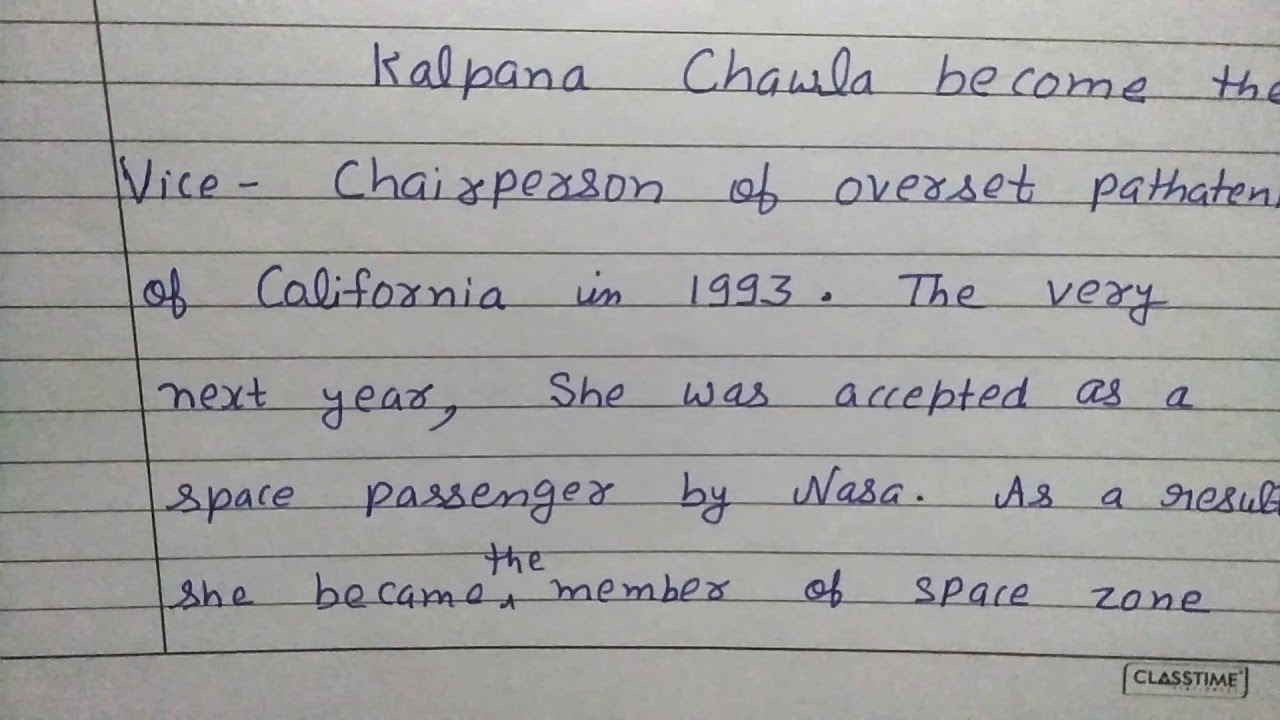 Kalpana Chawla become the
Vice- Chairperson of overset pathaten
of California in 1993. The very
next year, She was accepted as a
space passenger by Nasa. As a result
the
she became ‸ member of space zone
CLASSTIME